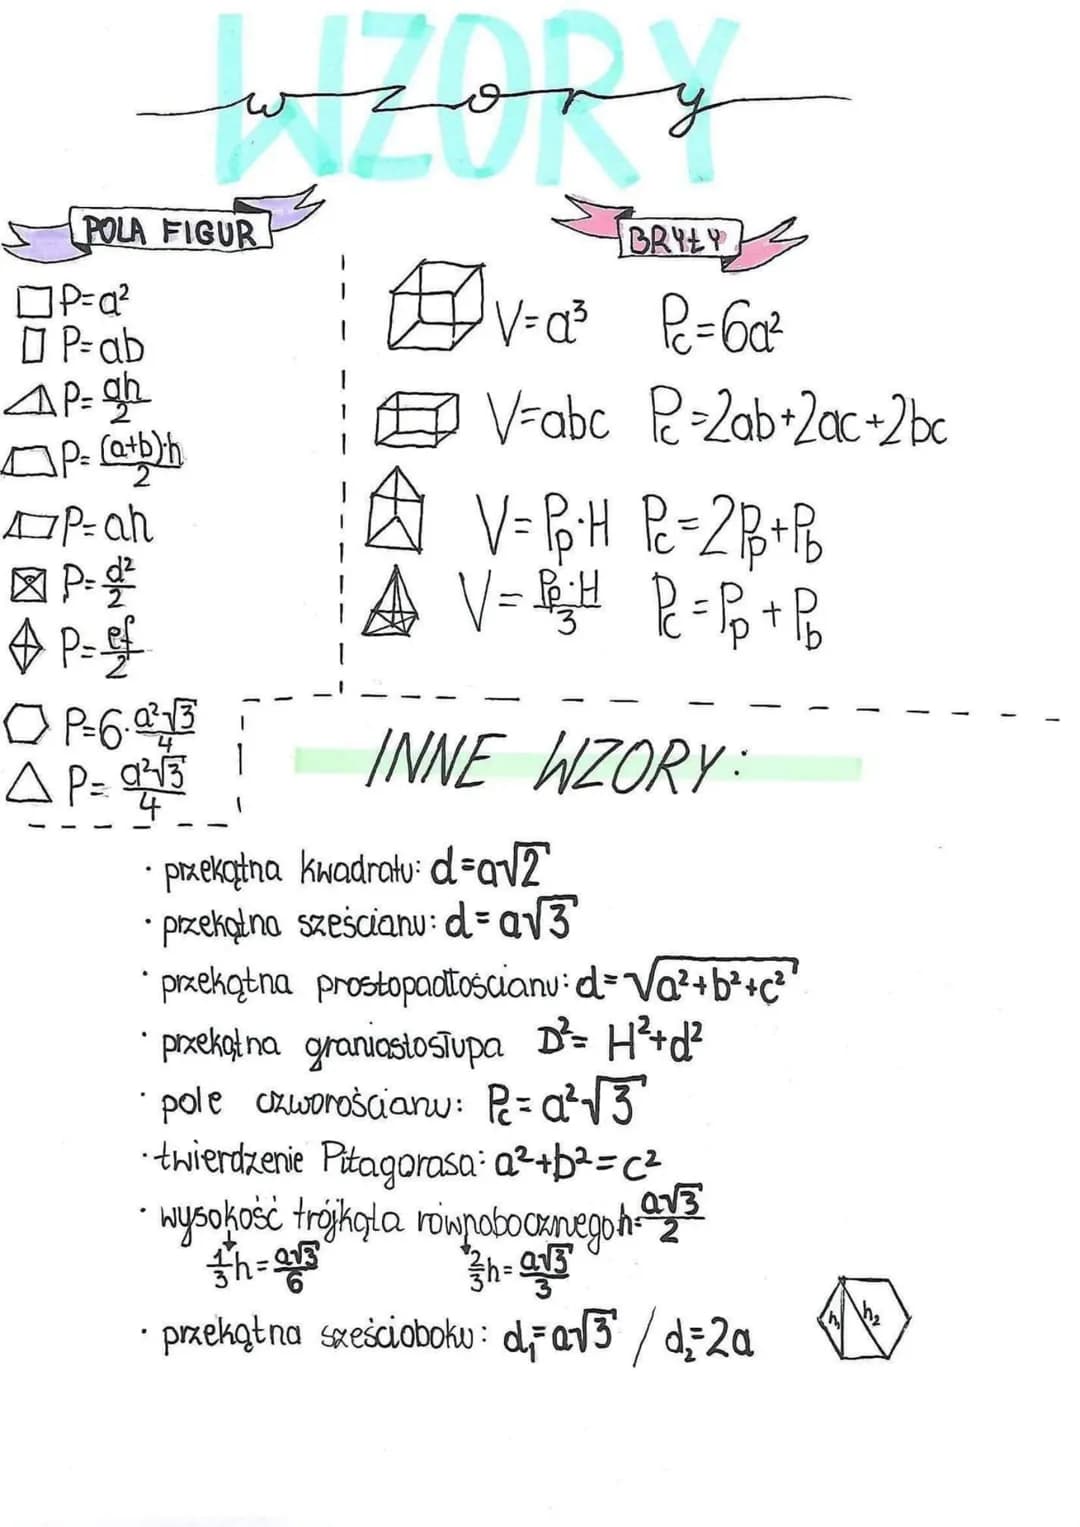 WZORY
wzory
POLA FIGUR
P=a²
P=ab
P=ah/2
P=(a+b)·h/2
P=ah
P=d²/2
P=ef/2
P=6·a²√3/4
P=a²√3/4
BRYŁY
V=a³ Pc=6a²
V=abc Pc=2ab+2ac+2bc
V=Pp·H Pc=2Pp+Pb
V=Pp·H/3 Pc=Pp+Pb
INNE WZORY:
· przekątna kwadratu: d=a√2
· przekątna sześcianu: d=a√3
· przekątna prostopadłościanu: d=√a²+b²+c²
· przekątna graniastosłupa D²=H²+d²
· pole czworościanu: Pc=a²√3
· twierdzenie Pitagorasa: a²+b²=c²
· wysokość trójkąta równobocznego h=a√3/2
1/3h=a√3/6 2/3h=a√3/3
· przekątna sześcioboku: d₁=a√3 / d₂=2a
h₁ h₂